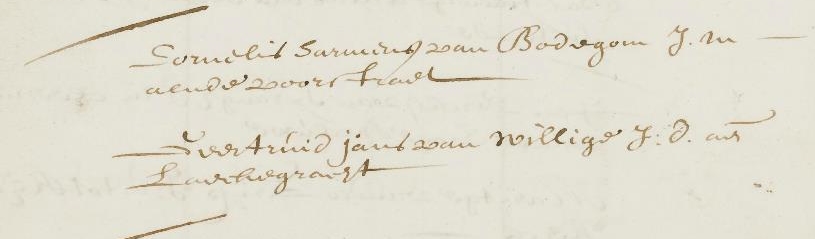 Cornelis Harmensz van Bodegom J. m
aende voorstraet
Geertruid jans van Willige J. d. aen
Lauwegraeft